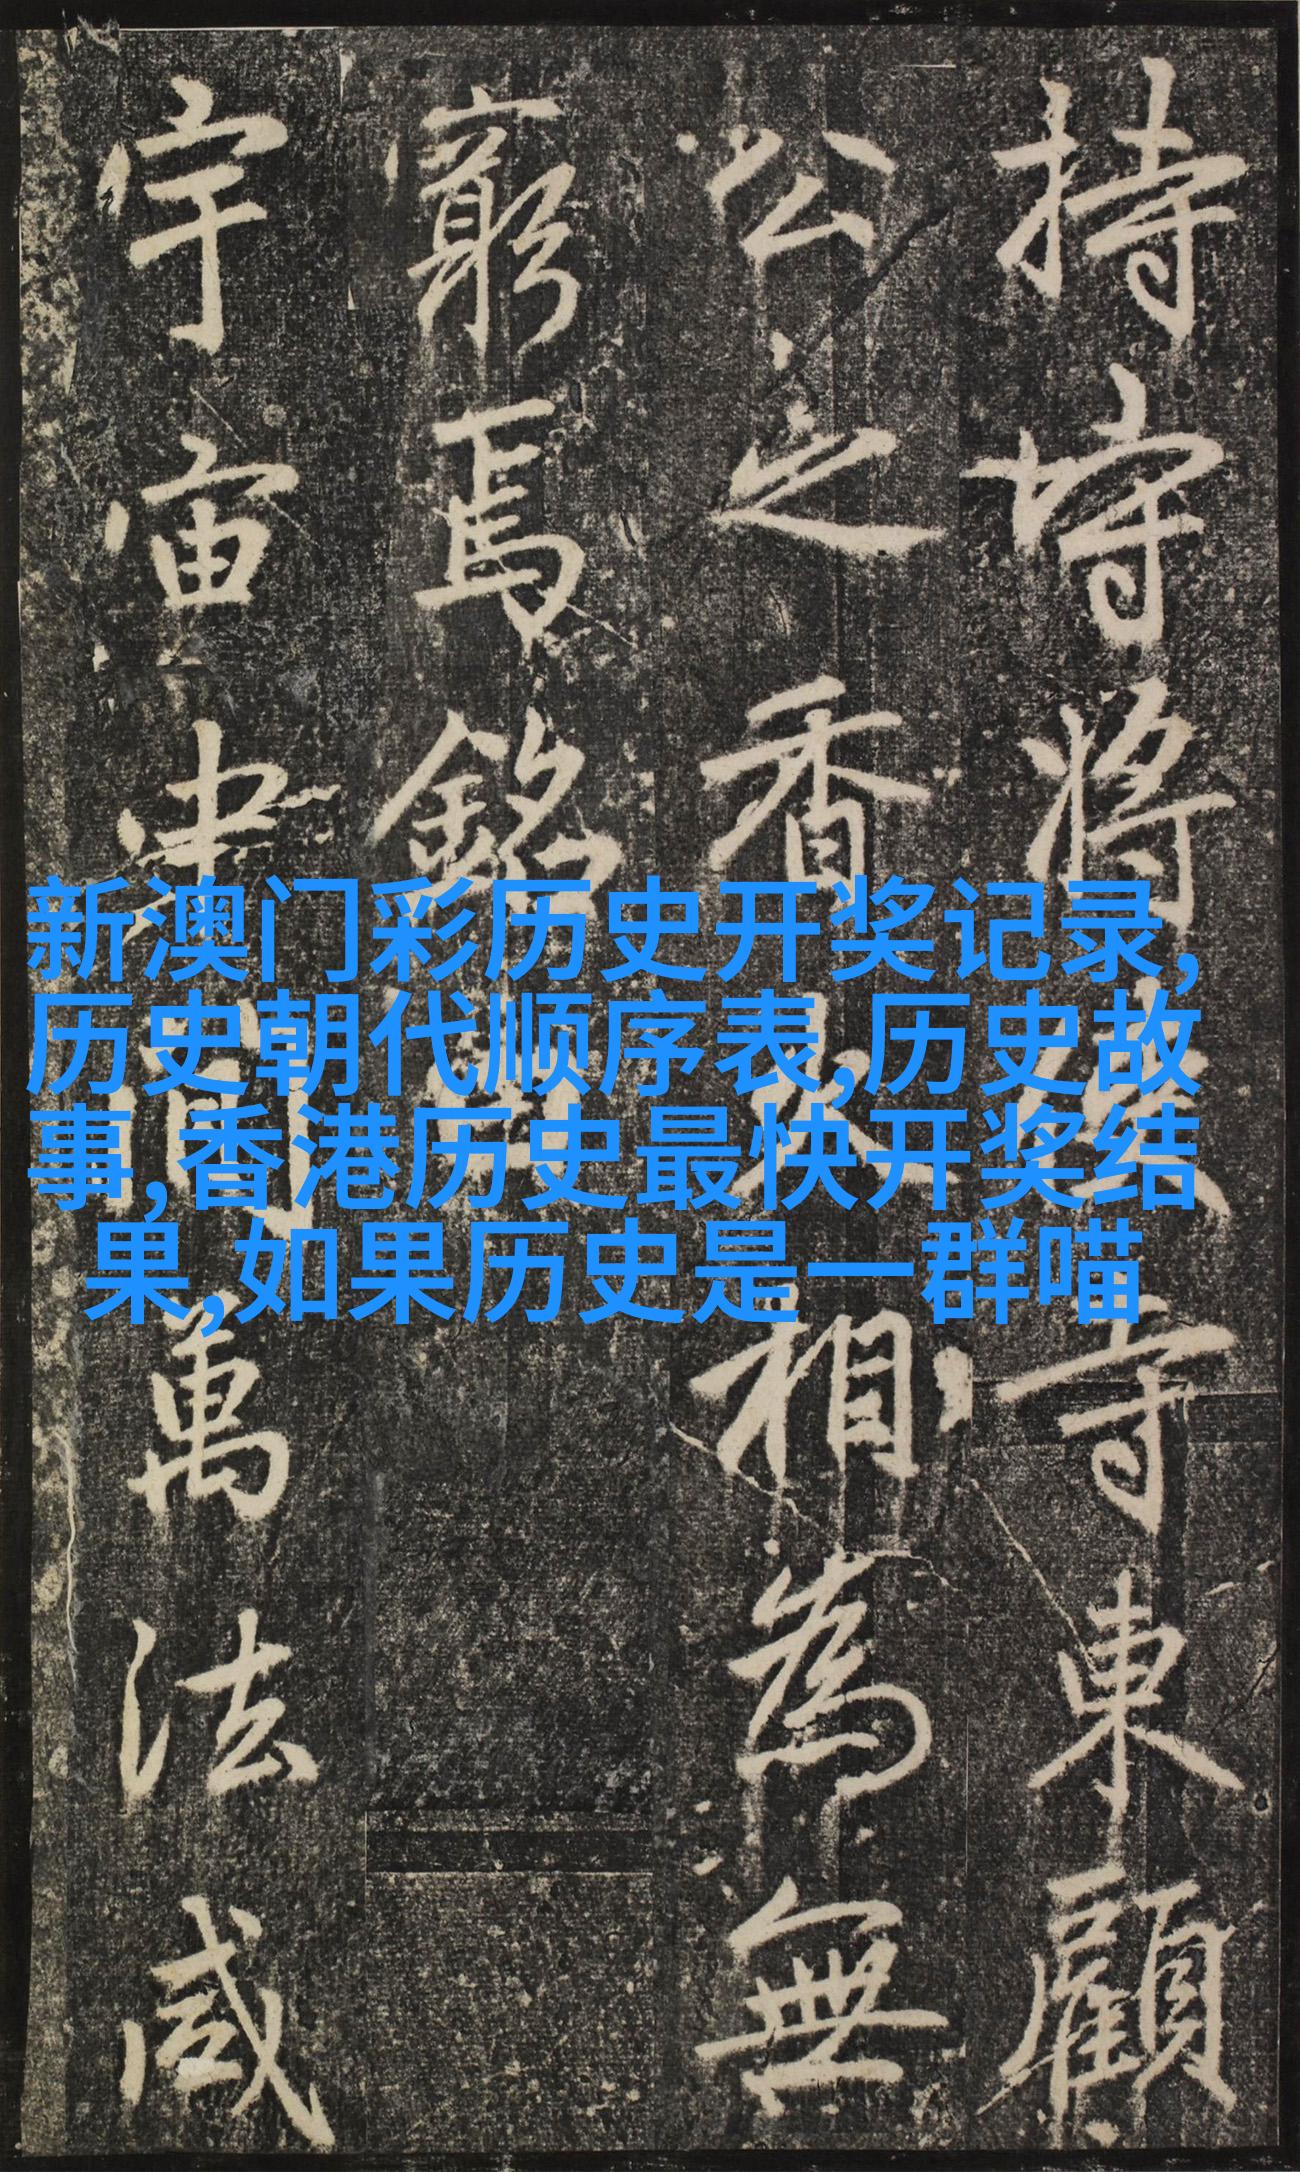 持将寺東顧
公之香火相為無
窮焉銘曰
宇宙間萬法咸
新澳门彩历史开奖记录,
历史朝代顺序表,历史故
事,香港历史最快开奖结
果,如果历史是一群喵